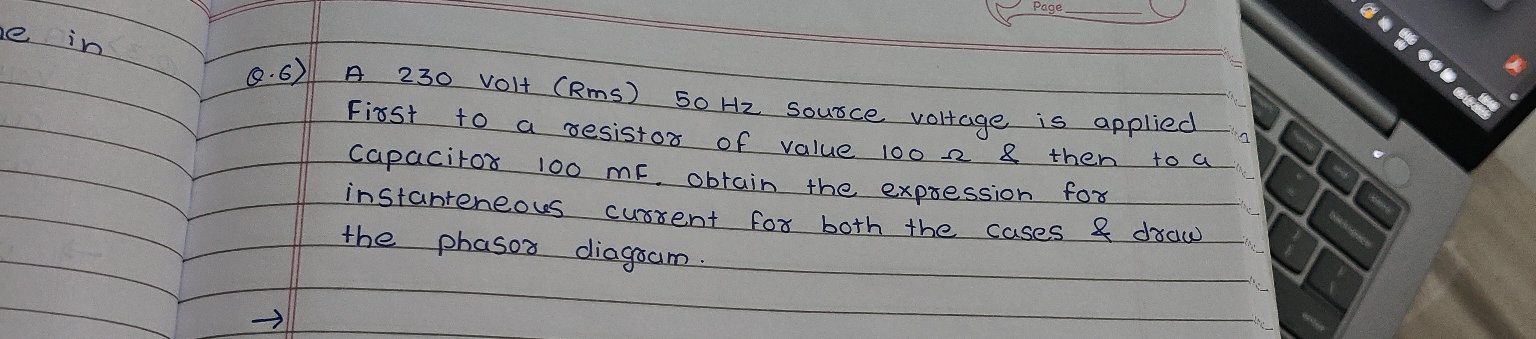 Page
ne in
Q.6) A 230 volt (Rms) 50 Hz source voltage is applied
First to a resistor of value 100 Ω & then to a
capacitor 100 mF. obtain the expression for
instanteneous current for both the cases & draw
the phasor diagram.
→